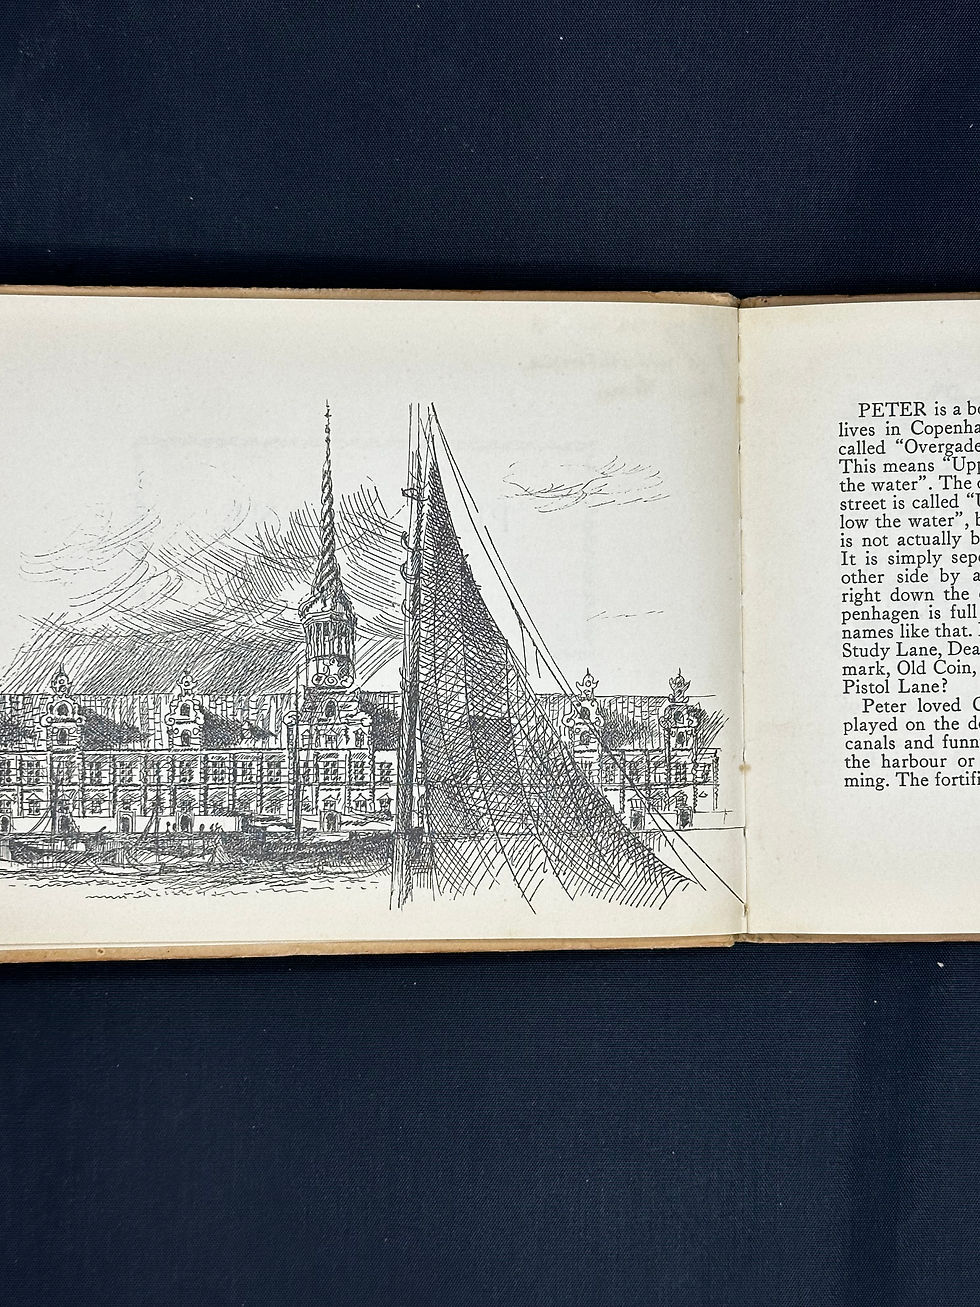 PETER is a
lives in
called “Overgade
This means
the water”. The
street is called
low the water”,
is not actually
It is simply
other side by a
right down the
penhagen is full
names like that.
Study Lane,
mark, Old Coin,
Pistol Lane?
Peter loved
played on the
canals and
the harbour or
ming. The